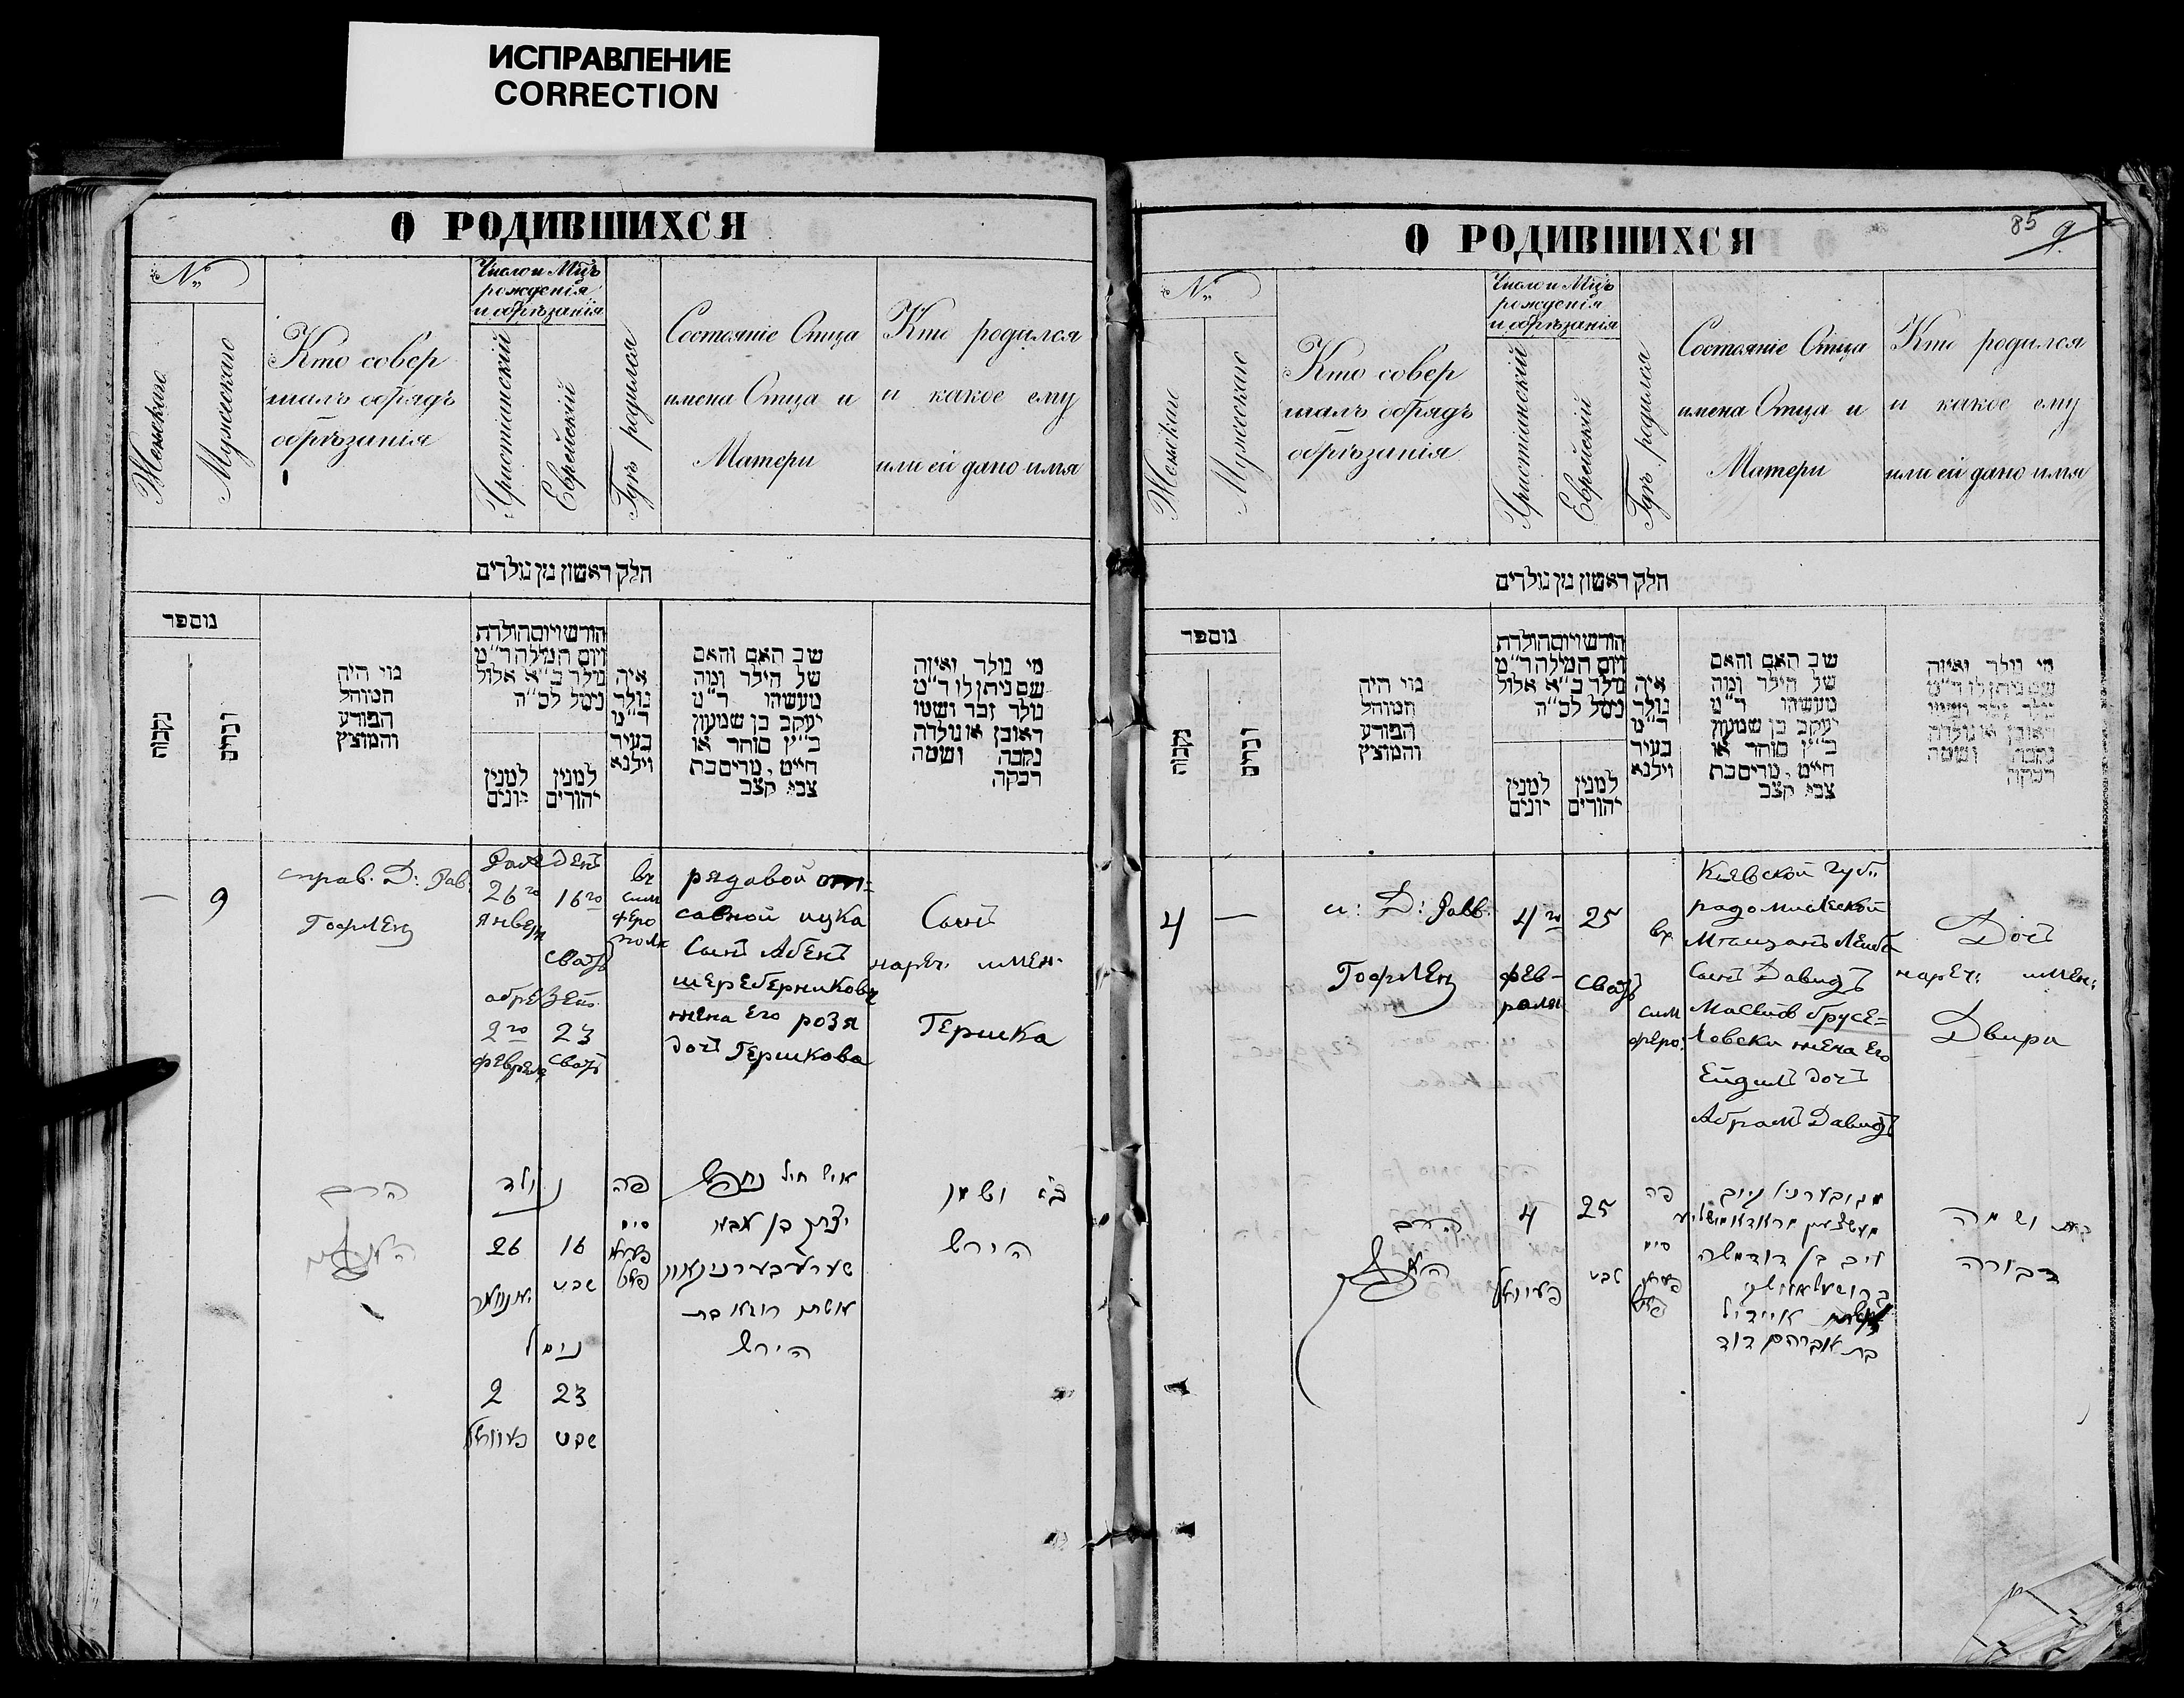 ИСПРАВЛЕНИЕ
CORRECTION
О РОДИВШИХСЯ
№
Женскаго
Мужескаго
Кто совер
шалъ обрядъ
обрѣзанія
Число и Мцъ
рожденія
и обрѣзанія
Христіанскій
Еврейскій
Гдѣ родился
Состояніе Отца
имена Отца и
Матери
Кто родился
и какое ему
или ей дано имя
חלק ראשון מן נולדים
מספר
נקבות
זכרים
מי היה
המוהל
הפורע
והמוצץ
חודש ויום הולדת
ויום המילה ד"מ
נולד ב"א אלול
נימל לכ"ה
למנין
יונים
למנין
יהודים
איה
נולד
ד"מ
בעיר
וילנא
שם האב והאם
של הילד ומה
מעשהו ד"מ
יעקב בן שמעון
כ"ץ סוחר או
חייט, מרים בת
צבי קצב
מי נולד ואיזה
שם ניתן לו ד"מ
נולד זכר ושמו
ראובן או נולדה
נקבה ושמה
רבקה
— 9
справ. Д: Рав.
Гофлең
26го
Январ
16го
Сватъ
обрезен
2го
23
Сватъ
въ
сим
феро
пол
рядовой
Сынъ Абенъ
шереберниковъ
жена Его розя
дочъ Гершкова
Сынъ
нареч. имен.
Гершка
הרב
נולד
26
16
יאנוואר
שבט
נימל
2
23
שבט
פה
סים
איש חיל
יצחק בן אבא
אשתו רוזא בת
הירש
בן ושמו
הירש
О РОДИВШИХСЯ
85
9
№
Женскаго
Мужескаго
Кто совер
шалъ обрядъ
обрѣзанія
Число и Мцъ
рожденія
и обрѣзанія
Христіанскій
Еврейскій
Гдѣ родился
Состояніе Отца
имена Отца и
Матери
Кто родился
и какое ему
или ей дано имя
חלק ראשון מן נולדים
מספר
נקבות
זכרים
מי היה
המוהל
הפורע
והמוצץ
חודש ויום הולדת
ויום המילה ד"מ
נולד ב"א אלול
נימל לכ"ה
למנין
יונים
למנין
יהודים
איה
נולד
ד"מ
בעיר
וילנא
שם האב והאם
של הילד ומה
מעשהו ד"מ
יעקב בן שמעון
כ"ץ סוחר או
חייט, מרים בת
צבי קצב
מי נולד ואיזה
שם ניתן לו ד"מ
נולד זכר ושמו
ראובן או נולדה
נקבה ושמה
רבקה
4 —
и: Д: Равв.
Гофлең
4го
фев-
раля
25
Сватъ
въ
сим
феро:
Кіевской губ.
радомислской
Мѣщанъ Лейба
Сынъ Давидъ
Масеевъ брусе=
ловски жена Его
Ейдилъ дочъ
Абрамъ Давидъ
Дочъ
нареч: имен:
Двира
הרב
4
25
שבט
פה
סים
ליב בן דוד משה
אשתו איידיל
בת אברהם דוד
בת ושמה
דבורה